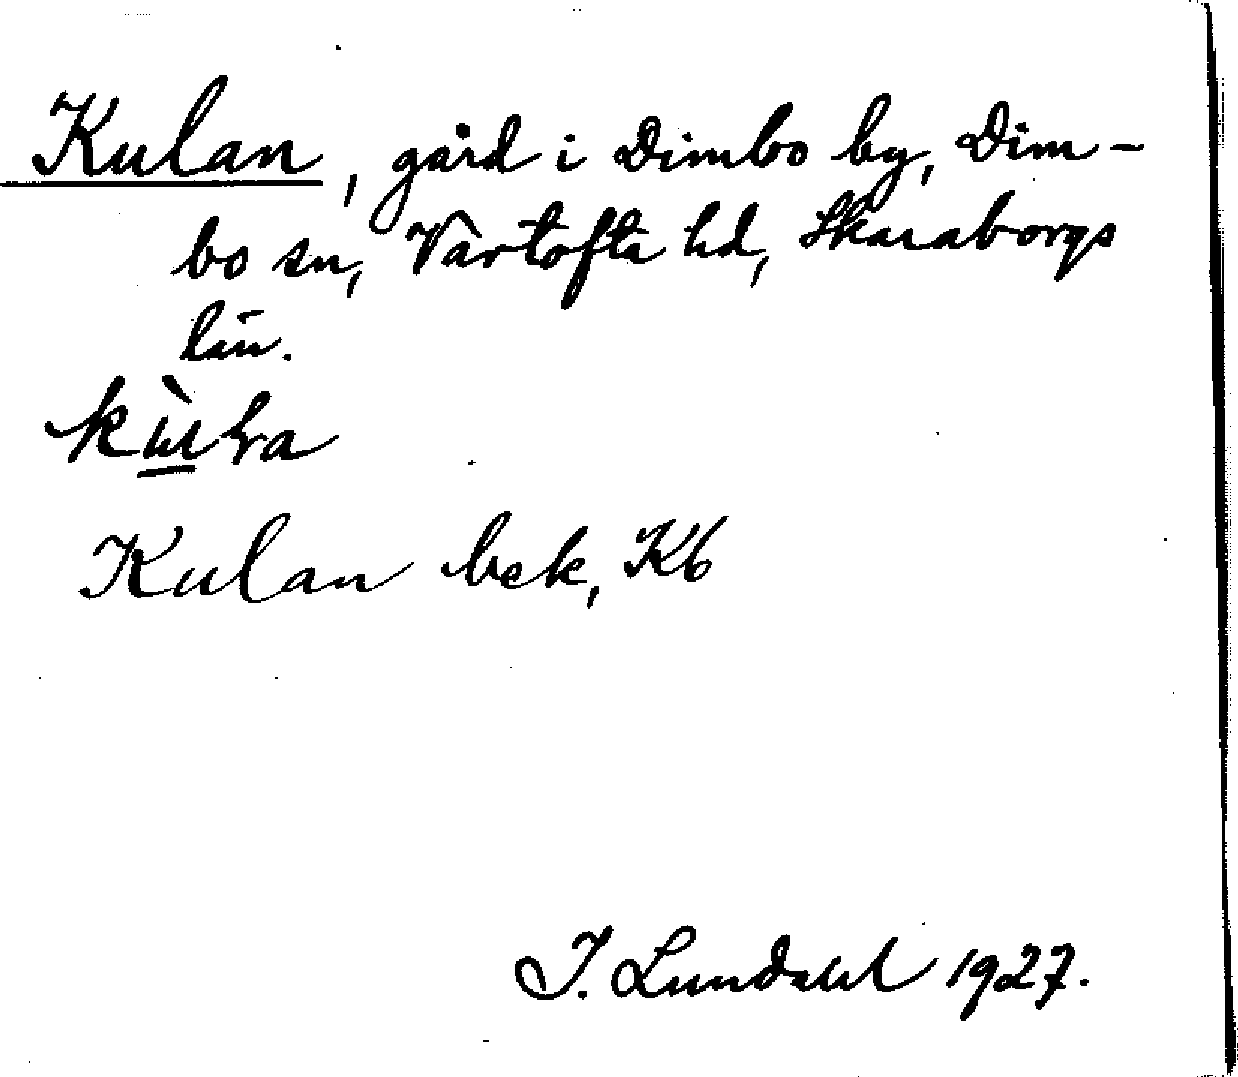 Kulan, gård i Dimbo by, Dim-
bo sn, Vartofta hd, Skaraborgs
län.
Kulan bek, Kb
I. Lundahl 1927.